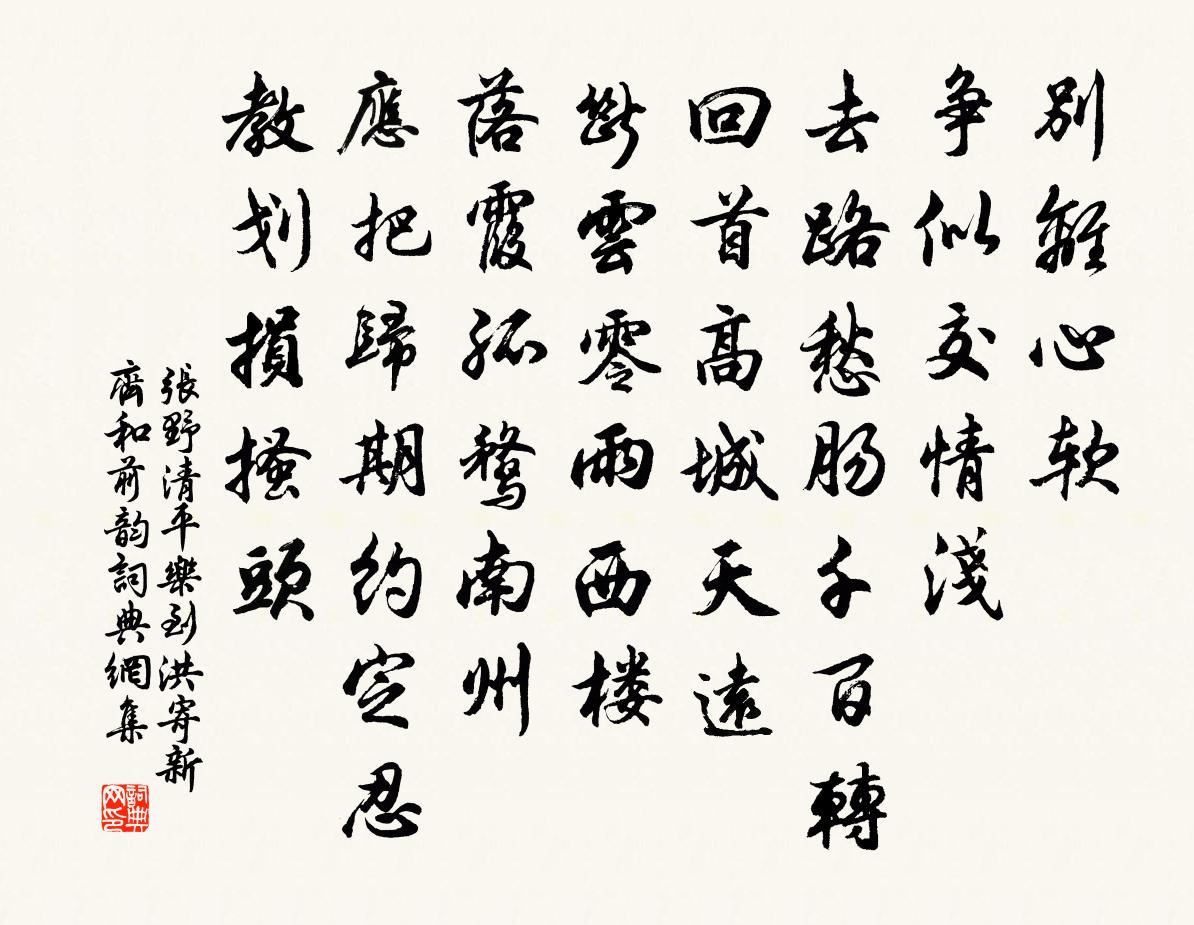 別離心软
争似交情淺
去路愁肠千百轉
回首高城天遠
斷雲零雨西楼
落霞孤鶩南州
應把歸期約定忍
教划損搔頭
張野清平樂到洪寄新
齋和前韵詞典網集
詞典网印